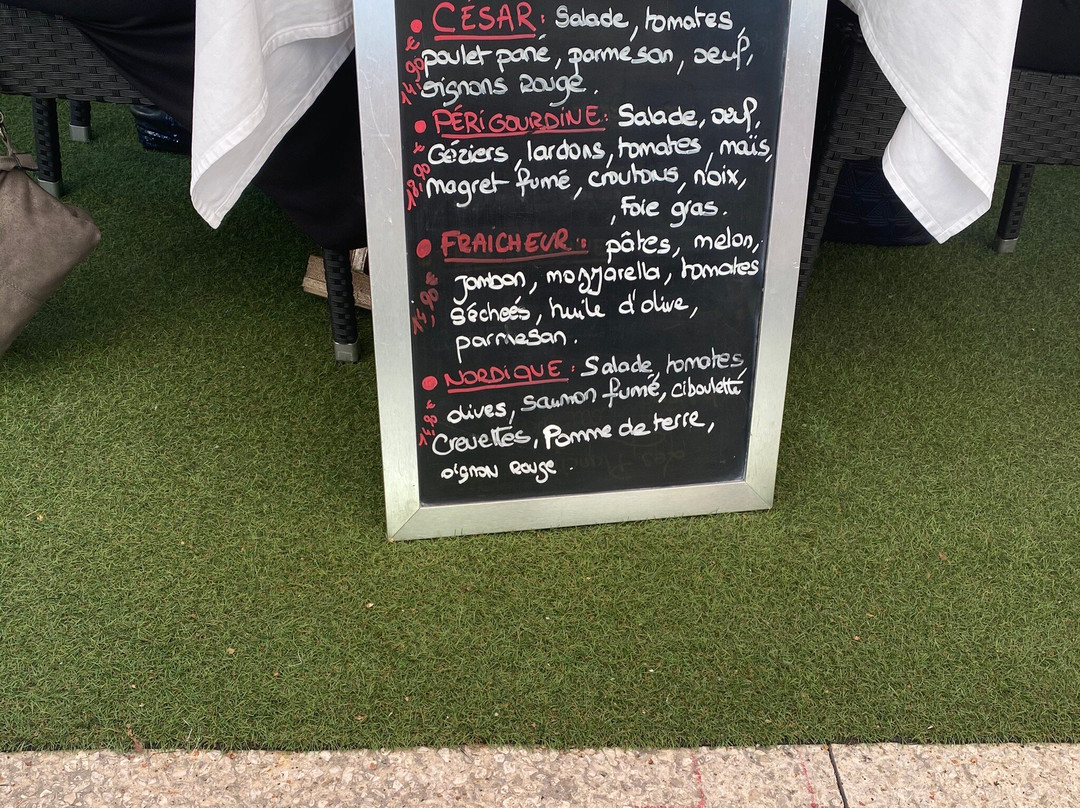 • CÉSAR : Salade, tomates,
poulet pané, parmesan, oeuf,
oignons Rouge.
14,90 €
• PÉRIGOURDINE : Salade, oeuf,
Géziers, lardons, tomates, maïs,
magret fumé, croutons, noix,
, Foie gras.
18,90 €
• FRAICHEUR : pâtes, melon,
jambon, mozzarella, tomates
séchées, huile d'olive,
parmesan.
14,90 €
• NORDIQUE : Salade, tomates
olives, saumon fumé, ciboulette
Crevettes, Pomme de terre,
oignon Rouge.